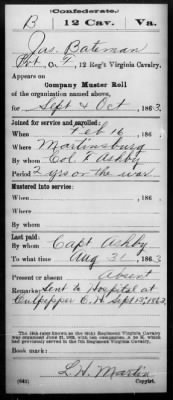 (Confederate.)
B 12 Cav. Va.
Jas. Bateman
Pvt., Co. F, 12 Reg't Virginia Cavalry.
Appears on
Company Muster Roll
of the organization named above,
for Sept & Oct, 1863.
Joined for service and enrolled:
When Feb 16, 186
Where Martinsburg
By whom Col. T. Ashby
Period 2 yrs or the war
Mustered into service:
When , 186 .
Where
By whom
Last paid:
By whom Capt Ashby
To what time Aug 31, 1863
Present or absent Absent
Remarks: Sent to Hospital at
Culpepper C. H. Sept 12, 1862
The 12th Regiment Virginia Cavalry
was organized June 21, 1862, with ten companies, A to K, which
had previously served in the 7th Regiment Virginia Cavalry.
Book mark:
(642) L. H. Martin
Copyist.